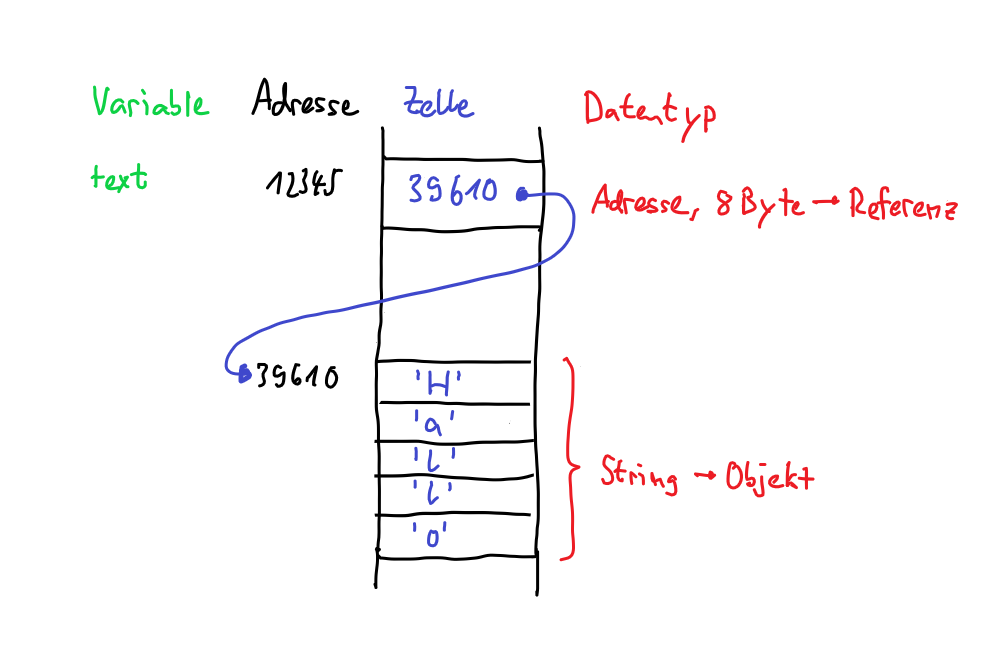 Variable Adresse Zelle Datentyp
text 12345 39610 Adresse, 8 Byte → Referenz
39610 'H'
'a'
'l'
String → Objekt
'l'
'o'